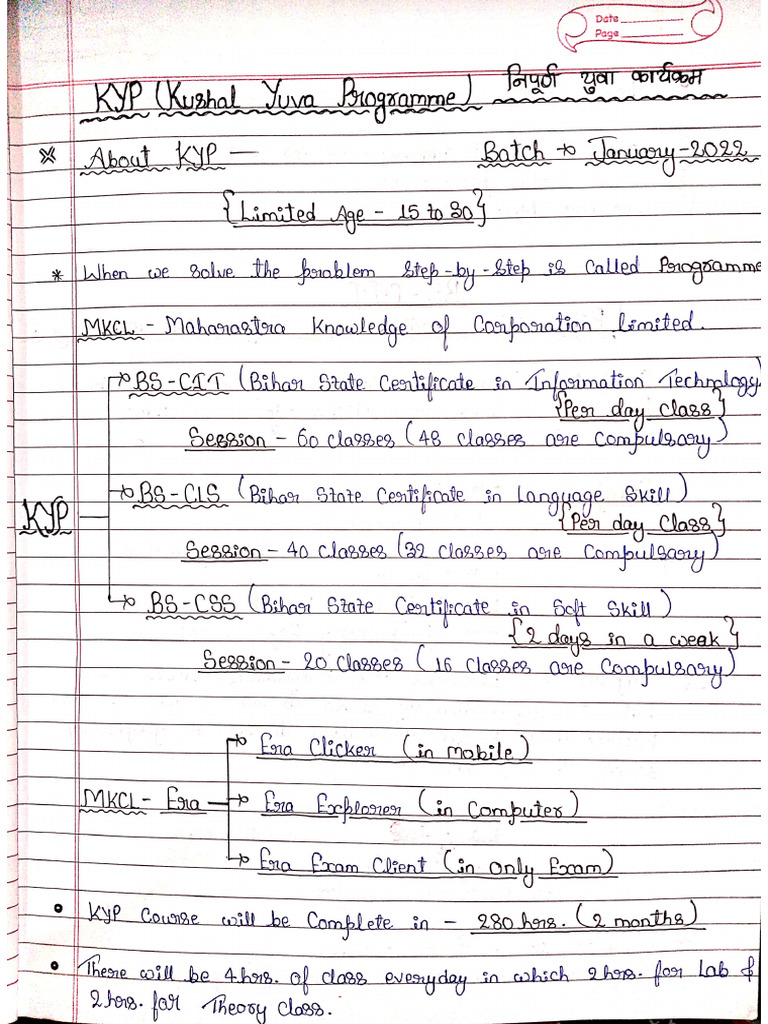 Date
Page
KYP (Kushal Yuva Programme) निपूर्ण युवा कार्यक्रम
About KYP — Batch → January-2022
{Limited Age - 15 to 30}
* When we solve the problem step-by-step is called Programme
MKCL - Maharastra Knowledge of Corporation Limited.
→ BS-CIT (Bihar State Certificate in Information Technology)
{Per day class}
Session - 60 classes (48 classes are compulsary)
→ BS-CLS (Bihar State Certificate in Language Skill)
KYP
{Per day class}
Session - 40 classes (32 classes are compulsary)
→ BS-CSS (Bihar State Certificate in Soft Skill)
{2 days in a week}
Session - 20 classes (16 classes are compulsary)
→ Era Clicker (in mobile)
MKCL - Era → Era Explorer (in Computer)
→ Era Exam Client (in only Exam)
• KYP Course will be Complete in - 280 hrs. (2 months)
• There will be 4 hrs. of class everyday in which 2 hrs. for Lab &
2 hrs. for Theory class.